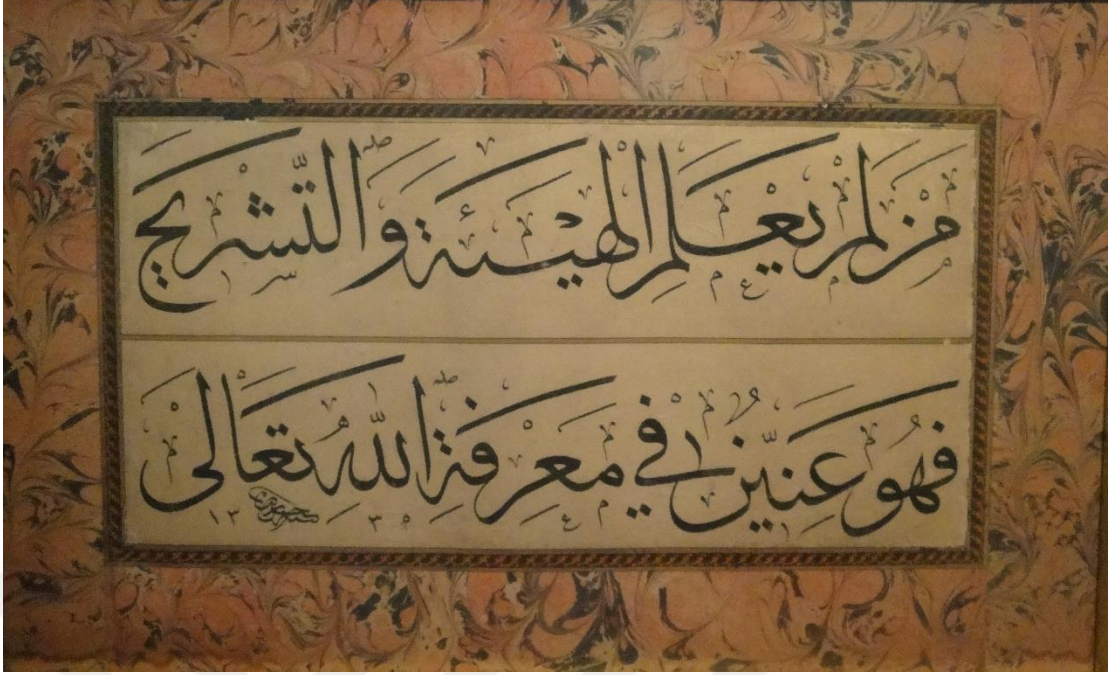 مَنْ لَمْ يَعْلَمِ الْهَيْئَةَ وَالتَّشْرِيحَ
فَهُوَ عَنِّينٌ فِي مَعْرِفَةِ اللّٰهِ تَعَالَى